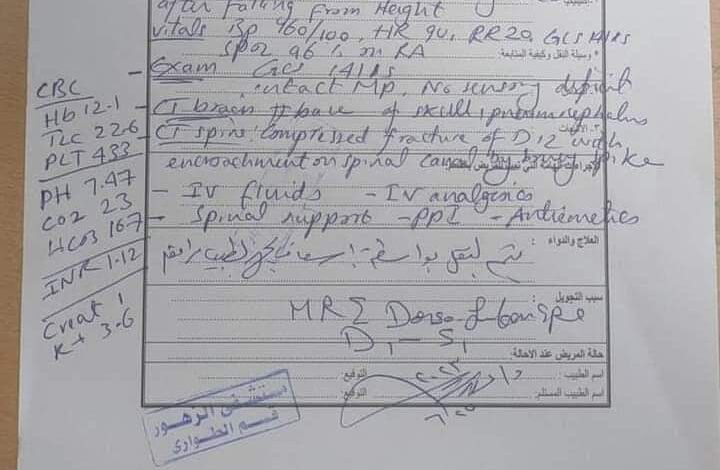 after falling from Height
vitals Bp 160/100, HR 90, RR 20 GCS 14/15
SPO2 96 % on RA
- Exam GCS 14/15
intact Mp, No sensory deficit
- CT brain # base of skull, pneumocephalus
- CT spine: Compressed fracture of D12 with
encroachment on spinal canal by bony spike
- IV fluids - IV analgesics
- Spinal support - PPI - Antiemetics
العلاج والدواء :
يتم النقل بواسطة اسعاف الطبيب مرافق
سبب التحويل :
MRI Dorso-lumbar Spine
D1 - S1
حالة المريض عند الاحالة:
اسم الطبيب : التوقيع:
اسم الطبيب المستلم: التوقيع:
٢٠٢٣
CBC
Hb 12.1
TLC 22.6
PLT 433
PH 7.47
CO2 23
HCO3 16.7
INR 1.12
Creat 1
K+ 3.6
مستشفى الزهور
قسم الطوارئ